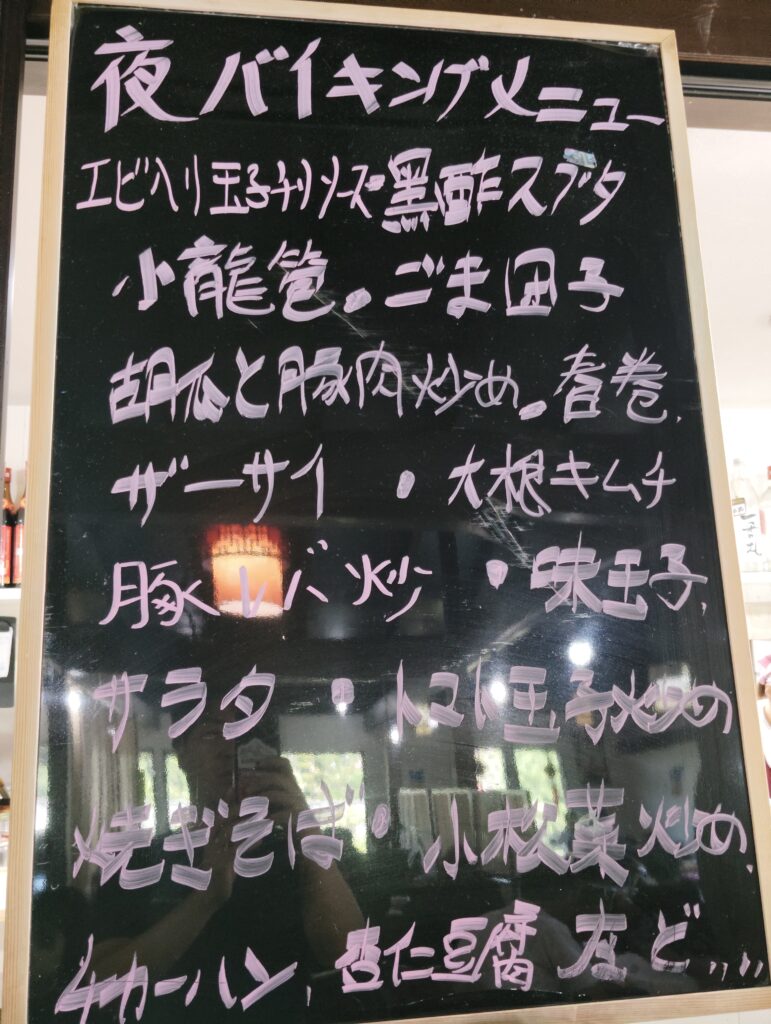 夜バイキングメニュー
エビ入リ玉子チリソース・黒酢スブタ
小龍包・ごま団子
胡瓜と豚肉炒め・春巻,
ザーサイ・大根キムチ
豚レバ炒・味玉子,
サラタ・トマト玉子炒め
焼ぎそば・小松菜炒め,
チカーハン,杏仁豆腐など,,,,